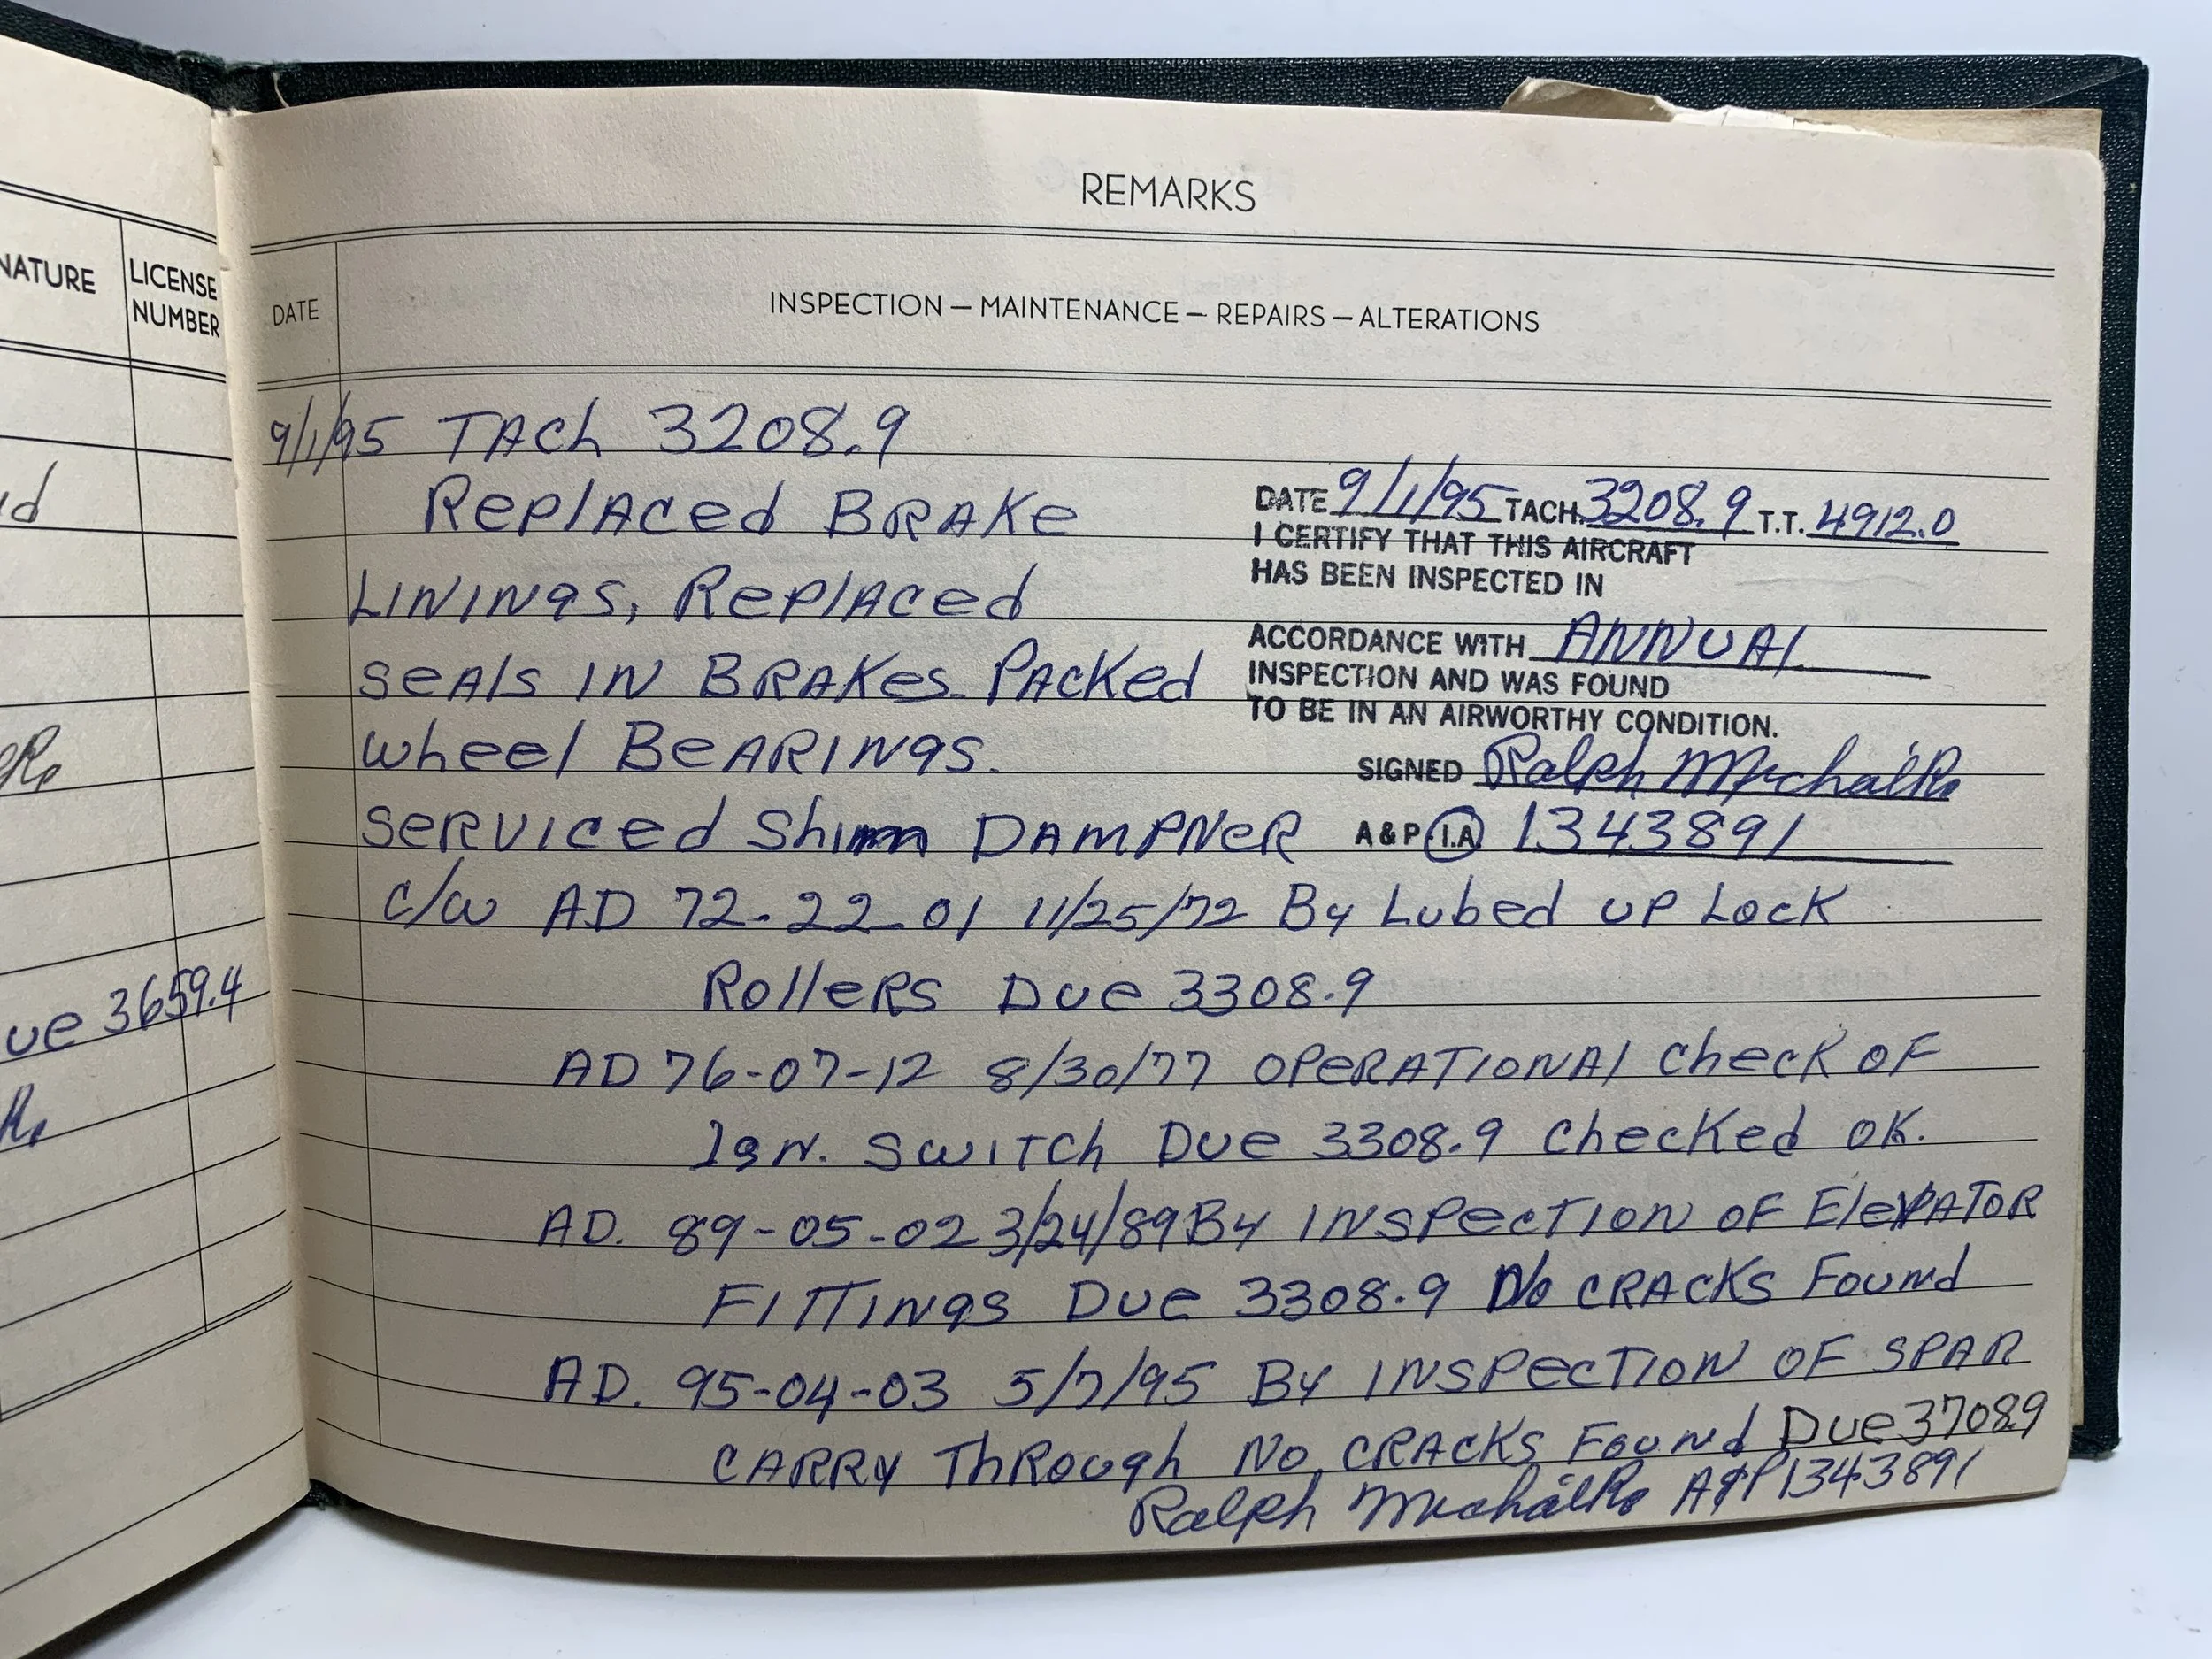 NATURE
LICENSE
NUMBER
ue 3659.4
REMARKS
DATE
INSPECTION — MAINTENANCE — REPAIRS — ALTERATIONS
9/1/95 TACh 3208.9
RePlACed BRAKe
LININgS, RePlACed
SeAls IN BRAKes PACKed
wheel BeARINgS.
SeRVICed Shimm DAMPNeR
DATE 9/1/95 TACH. 3208.9 T.T. 4912.0
I CERTIFY THAT THIS AIRCRAFT
HAS BEEN INSPECTED IN
ACCORDANCE WITH ANNUAl
INSPECTION AND WAS FOUND
TO BE IN AN AIRWORTHY CONDITION.
SIGNED Ralph Michalk
A & P I.A 1343891
c/w AD 72-22-01 11/25/72 By Lubed UP LOCK
RolleRS Due 3308.9
AD 76-07-12 8/30/77 OPeRATIONAl CheCK OF
Ign. SWITCh Due 3308.9 CheCKed OK.
AD. 89-05-02 3/24/89 By INSPeCTION OF EleVATOR
FITTINgS Due 3308.9 No CRACKS Found
AD. 95-04-03 5/7/95 By INSPeCTION OF SPAR
CARRY ThRough No CRACKS Found Due 3708.9
Ralph Michalk A&P 1343891